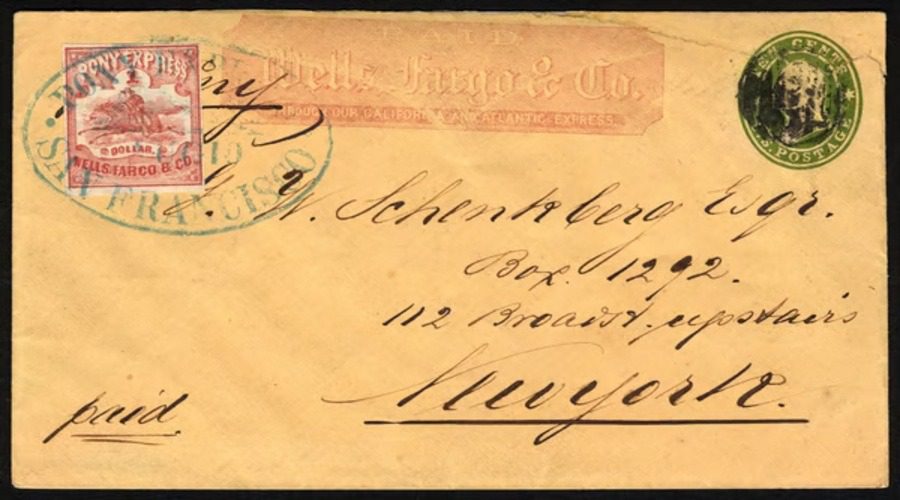 PAID
Wells, Fargo & Co.
THROUGH OUR CALIFORNIA AND ATLANTIC EXPRESS.
PONY EXPRESS
DOLLAR.
WELLS, FARGO & CO.
PONY
SAN FRANCISCO
TEN CENTS
U.S. POSTAGE
G. W. Schenkberg Esqr.
Box. 1292.
112 Broadst, upstairs
New York.
paid